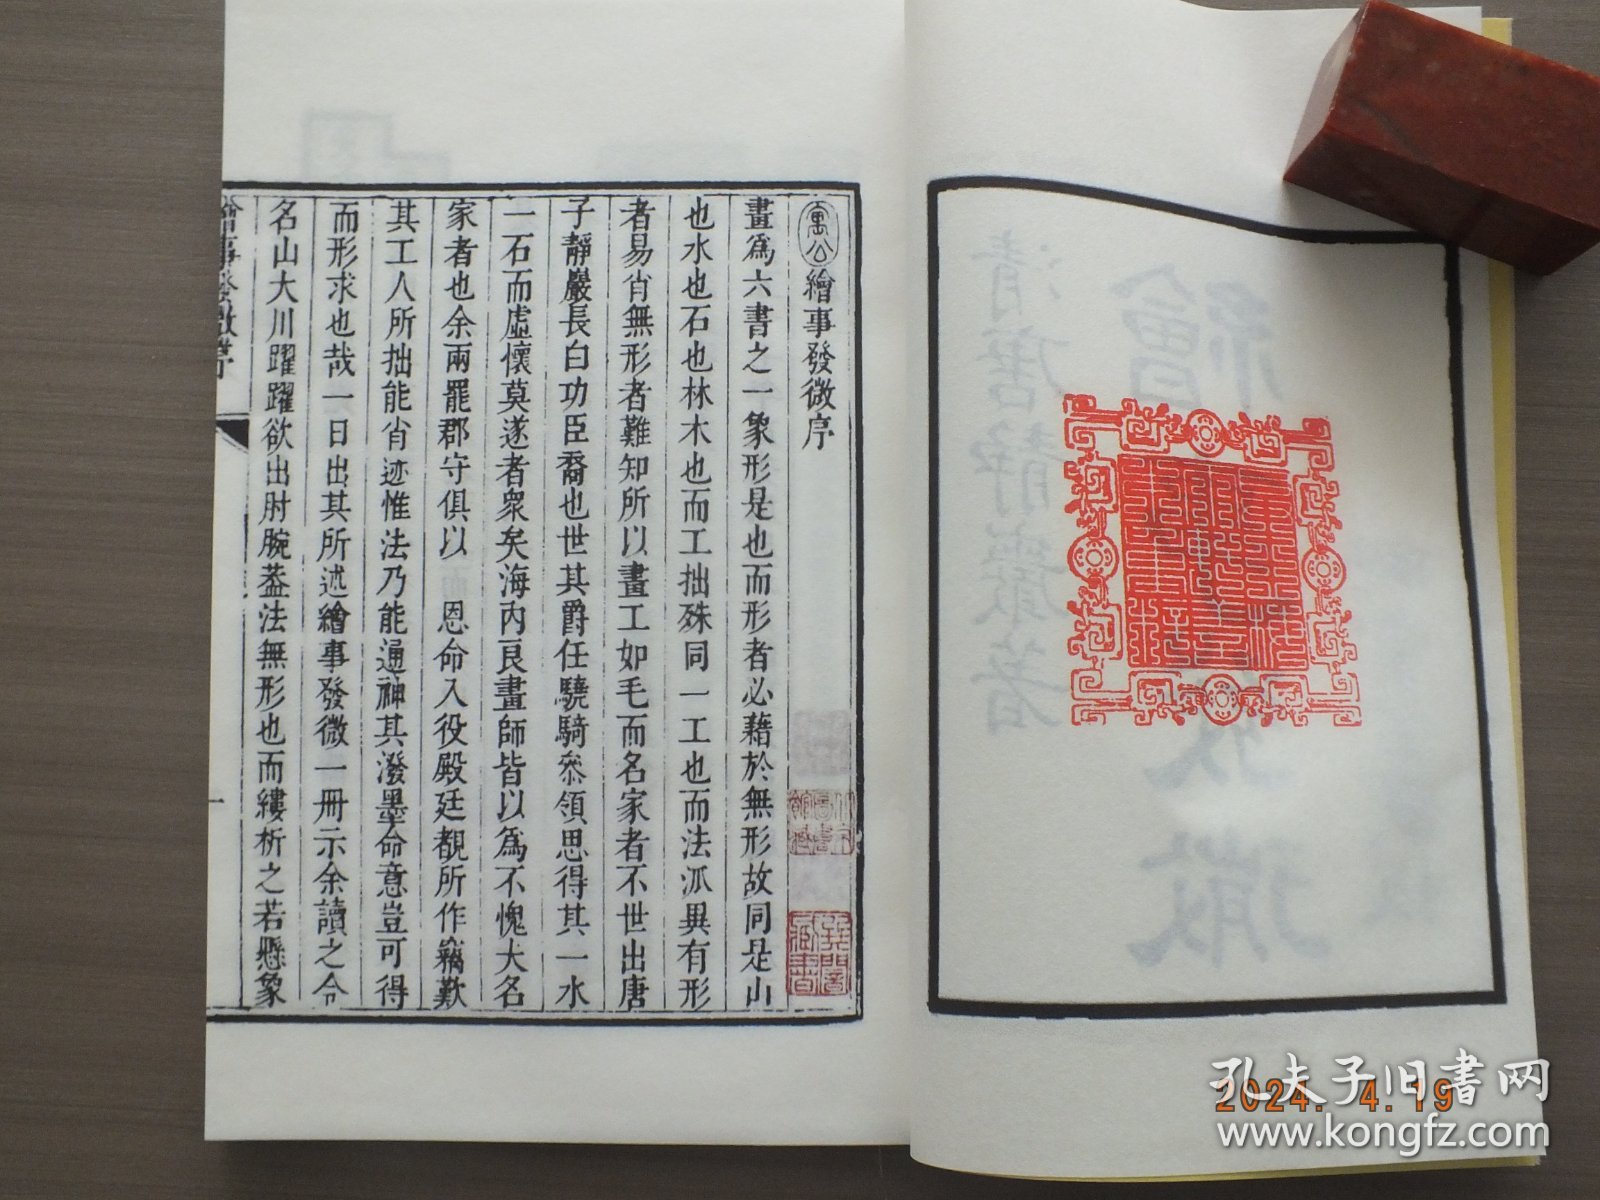 繪事發微序
畫爲六書之一象形是也而形者必藉於無形故同是山
也水也石也林木也而工拙殊同一工也而法派異有形
者易肖無形者難知所以畫工如毛而名家者不世出唐
子靜巖長白功臣裔也世其爵任驍騎叅領思得其一水
一石而虛懷莫遂者衆矣海内良畫師皆以爲不愧大名
家者也余兩罷郡守俱以 恩命入役殿廷覩所作竊歎
其工人所拙能肖迹惟法乃能通神其潑墨命意豈可得
而形求也哉一日出其所述繪事發微一冊示余讀之令
名山大川躍躍欲出肘腕葢法無形也而縷析之若懸象
繪事發微序
一
清唐靜巖著
繪事發微
孔夫子旧书网
2024. 4.19
www.kongfz.com